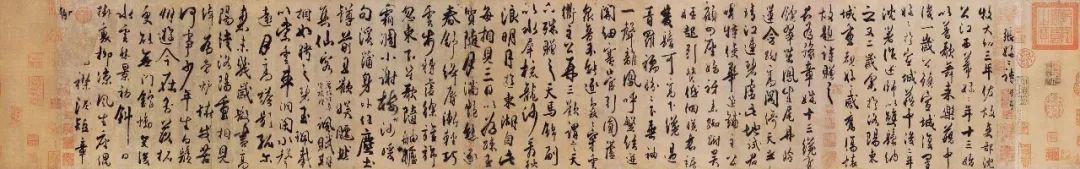 張好好詩
牧大和三年佐故吏部沈
公江西幕好好年十三始
以善歌舞來樂籍中
後一歲公鎮宣城復置
好好於宣城籍中後二年
沈著作以雙鬟納
之又二歲余於洛陽東
城重覩好好感舊傷懷
故題詩贈之
君為豫章姝十三纔有
餘翠茁鳳生尾丹臉
蓮含跗高閣倚天半
晴江連碧虛此地試君
唱特使華筵鋪主公
顧四座始訝來踟躕吳
娃起引贊低佪暎長
裾雙鬟可高下纔過
青羅襦盼盼下垂袖
一聲離鳳呼繁弦迸
關紐塞管引圓蘆
衆音不能逐裊裊穿雲
衢主公再三歎謂言天
下殊贈之天馬錦副
以水犀梳龍沙看秋
浪明月遊東湖自此
每相見三日以為踈玉
質隨月滿豔態逐
春舒絳脣漸輕巧
雲步轉虛徐旌旆
忽東下笙歌隨舳艫
霜凋小謝樹沙暖
句溪蒲身外任塵土
罇前且歡娛飄然
集仙客諷賦期
相如聘之碧玉珮載
以紫雲車洞閉水聲
遠月高蟾影孤尔
來未幾歲散盡高
陽徒洛陽重相見
綽綽為當壚怪我苦
何事少年生白鬚
朋遊今在否落拓
更能無門館慟哭後
水雲秋景初斜日
掛衰柳涼風生座隅
襟淚短章